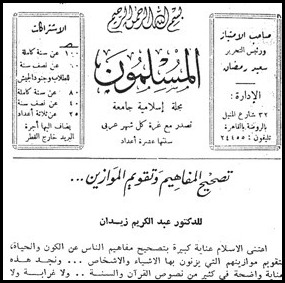 بسم الله الرحمن الرحيم
صاحب الامتياز
ورئيس التحرير
سعيد رمضان
الإدارة :
٣٢ شارع المنيل
بالروضة بالقاهرة
تليفون : ٢٤٤٥٥
المسلمون
مجلة إسلامية جامعة
تصدر مع غرة كل شهر عربي
سنتها عشرة أعداد
الاشتراكات
١٠٠ عن سنة كاملة
٦٠ عن نصف سنة
للطلاب وجنود الجيش
٨٠ عن سنة كاملة
٤٠ عن نصف سنة
٢٥ عن ثلاثة أعداد
يضاف إليها أجرة
البريد خارج القطر
تصحيح المفاهيم وتقويم الموازين ...
للدكتور عبد الكريم زيدان
اعتنى الاسلام عناية كبيرة بتصحيح مفاهيم الناس عن الكون والحياة،
تقويم موازينهم التي يزنون بها الاشياء والاشخاص ... ونجد هذه
عناية واضحة في كثير من نصوص القرآن والسنة .. ولا غرابة ولا